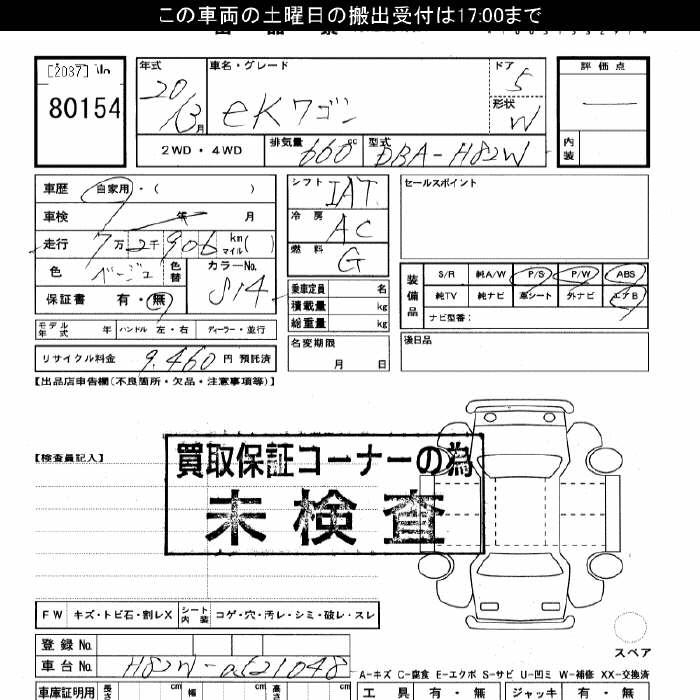 この車両の土曜日の搬出受付は17:00まで
[2037]
80154
年式 車名・グレード ドア 評価点
20 13月 eKワゴン 5
形状 W
2WD・4WD 排気量 660cc 型式 DBA-H82W 内装
車歴 自家用・( )
車検 年 月
走行 7万2千906 km マイル( )
色 ベージュ 色替 カラーNo. S14
保証書 有・無
モデル年式 年 ハンドル 左・右 ディーラー・並行
リサイクル料金 9,460円 預託済
シフト IAT
冷房 AC
燃料 G
乗車定員 名
積載量 kg
総重量 kg
名変期限 月 日
セールスポイント
装備品 S/R 純A/W P/S P/W ABS
純TV 純ナビ 革シート 外ナビ エアB
ナビ型番:
後日品
【出品店申告欄(不良箇所・欠品・注意事項等)】
【検査員記入】
買取保証コーナーの為
未検査
FW キズ・トビ石・割レX シート内装 コゲ・穴・汚レ・シミ・破レ・スレ
スペア
登録No.
車台No. H82W-0621048
A-キズ C-腐食 E-エクボ S-サビ U-凹ミ W-補修 XX-交換済
車庫証明用 長さ cm 幅 cm 高さ cm 工具 有・無 ジャッキ 有・無